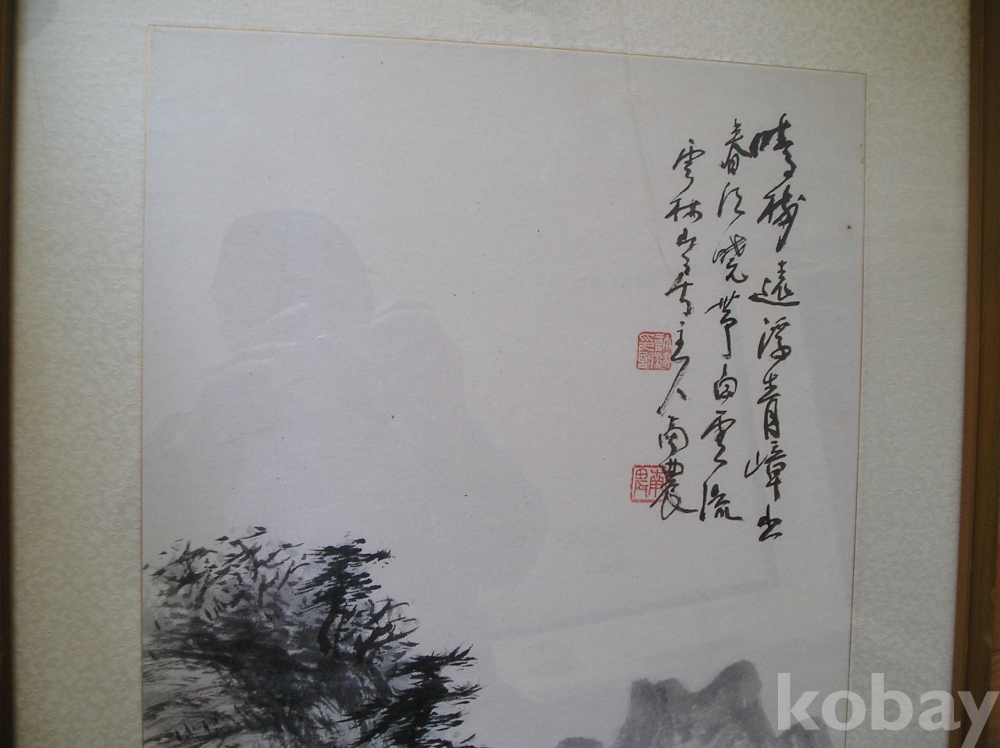 晴樹遠浮青嶂出
春江曉帶白雲流
雲林山 主人 南農
南
農
kobay